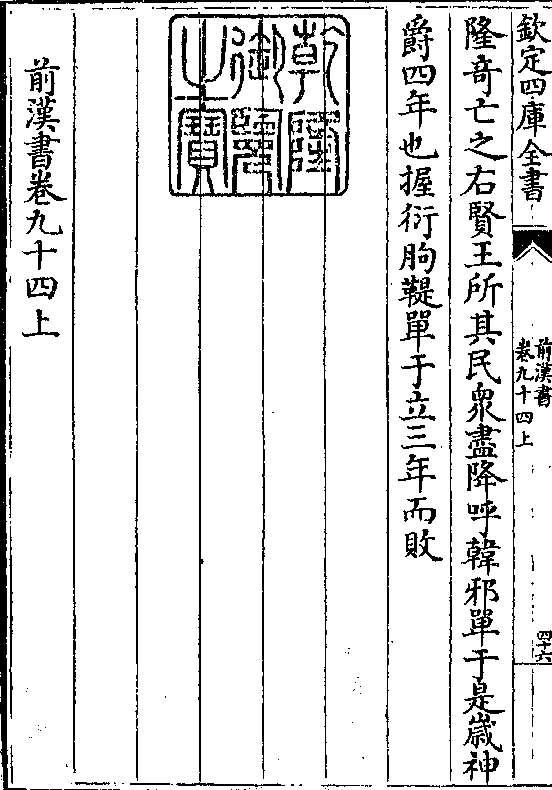 欽定四庫全書
前漢書
卷九十四上
四十六
隆奇亡之右賢王所其民衆盡降呼韓邪單于是歲神
爵四年也握衍朐鞮單于立三年而敗
乾隆
御覽
之寶
前漢書卷九十四上